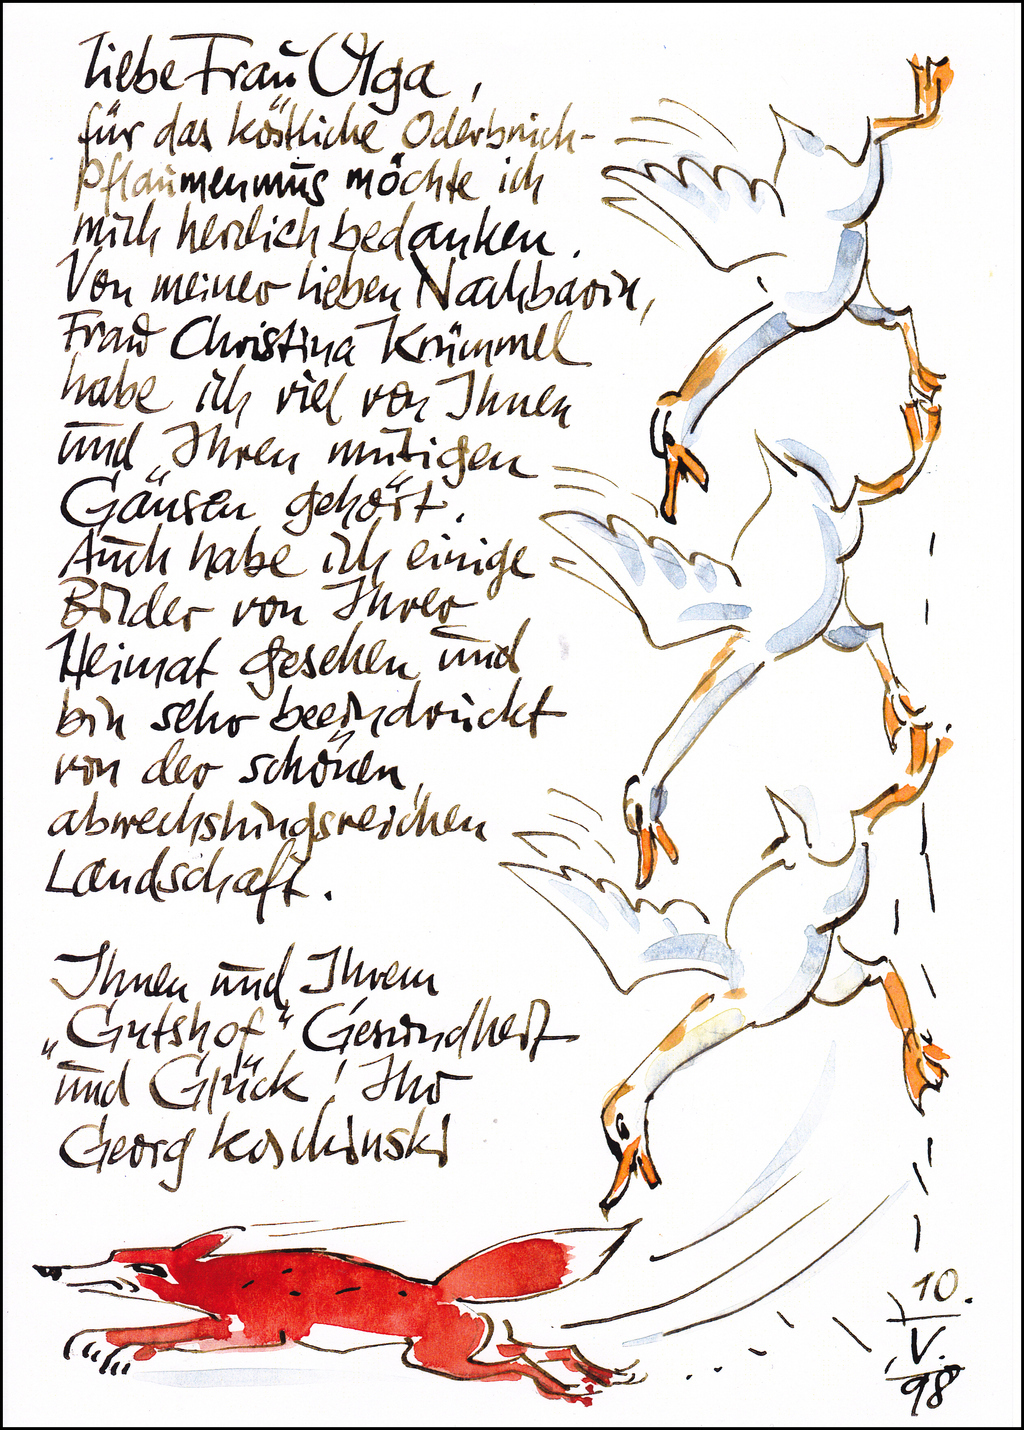 Liebe Frau Olga,
für das köstliche Oderbruch-
Pflaumenmus möchte ich
mich herzlich bedanken.
Von meiner lieben Nachbarin,
Frau Christina Krümmel
habe ich viel von Ihnen
und Ihren mutigen
Gänsen gehört.
Auch habe ich einige
Bilder von Ihrer
Heimat gesehen und
bin sehr beeindruckt
von der schönen,
abwechslungsreichen
Landschaft.
Ihnen und Ihrem
„Gutshof“ Gesundheit
und Glück! Ihr
Georg Koschinski
10.
V.
98